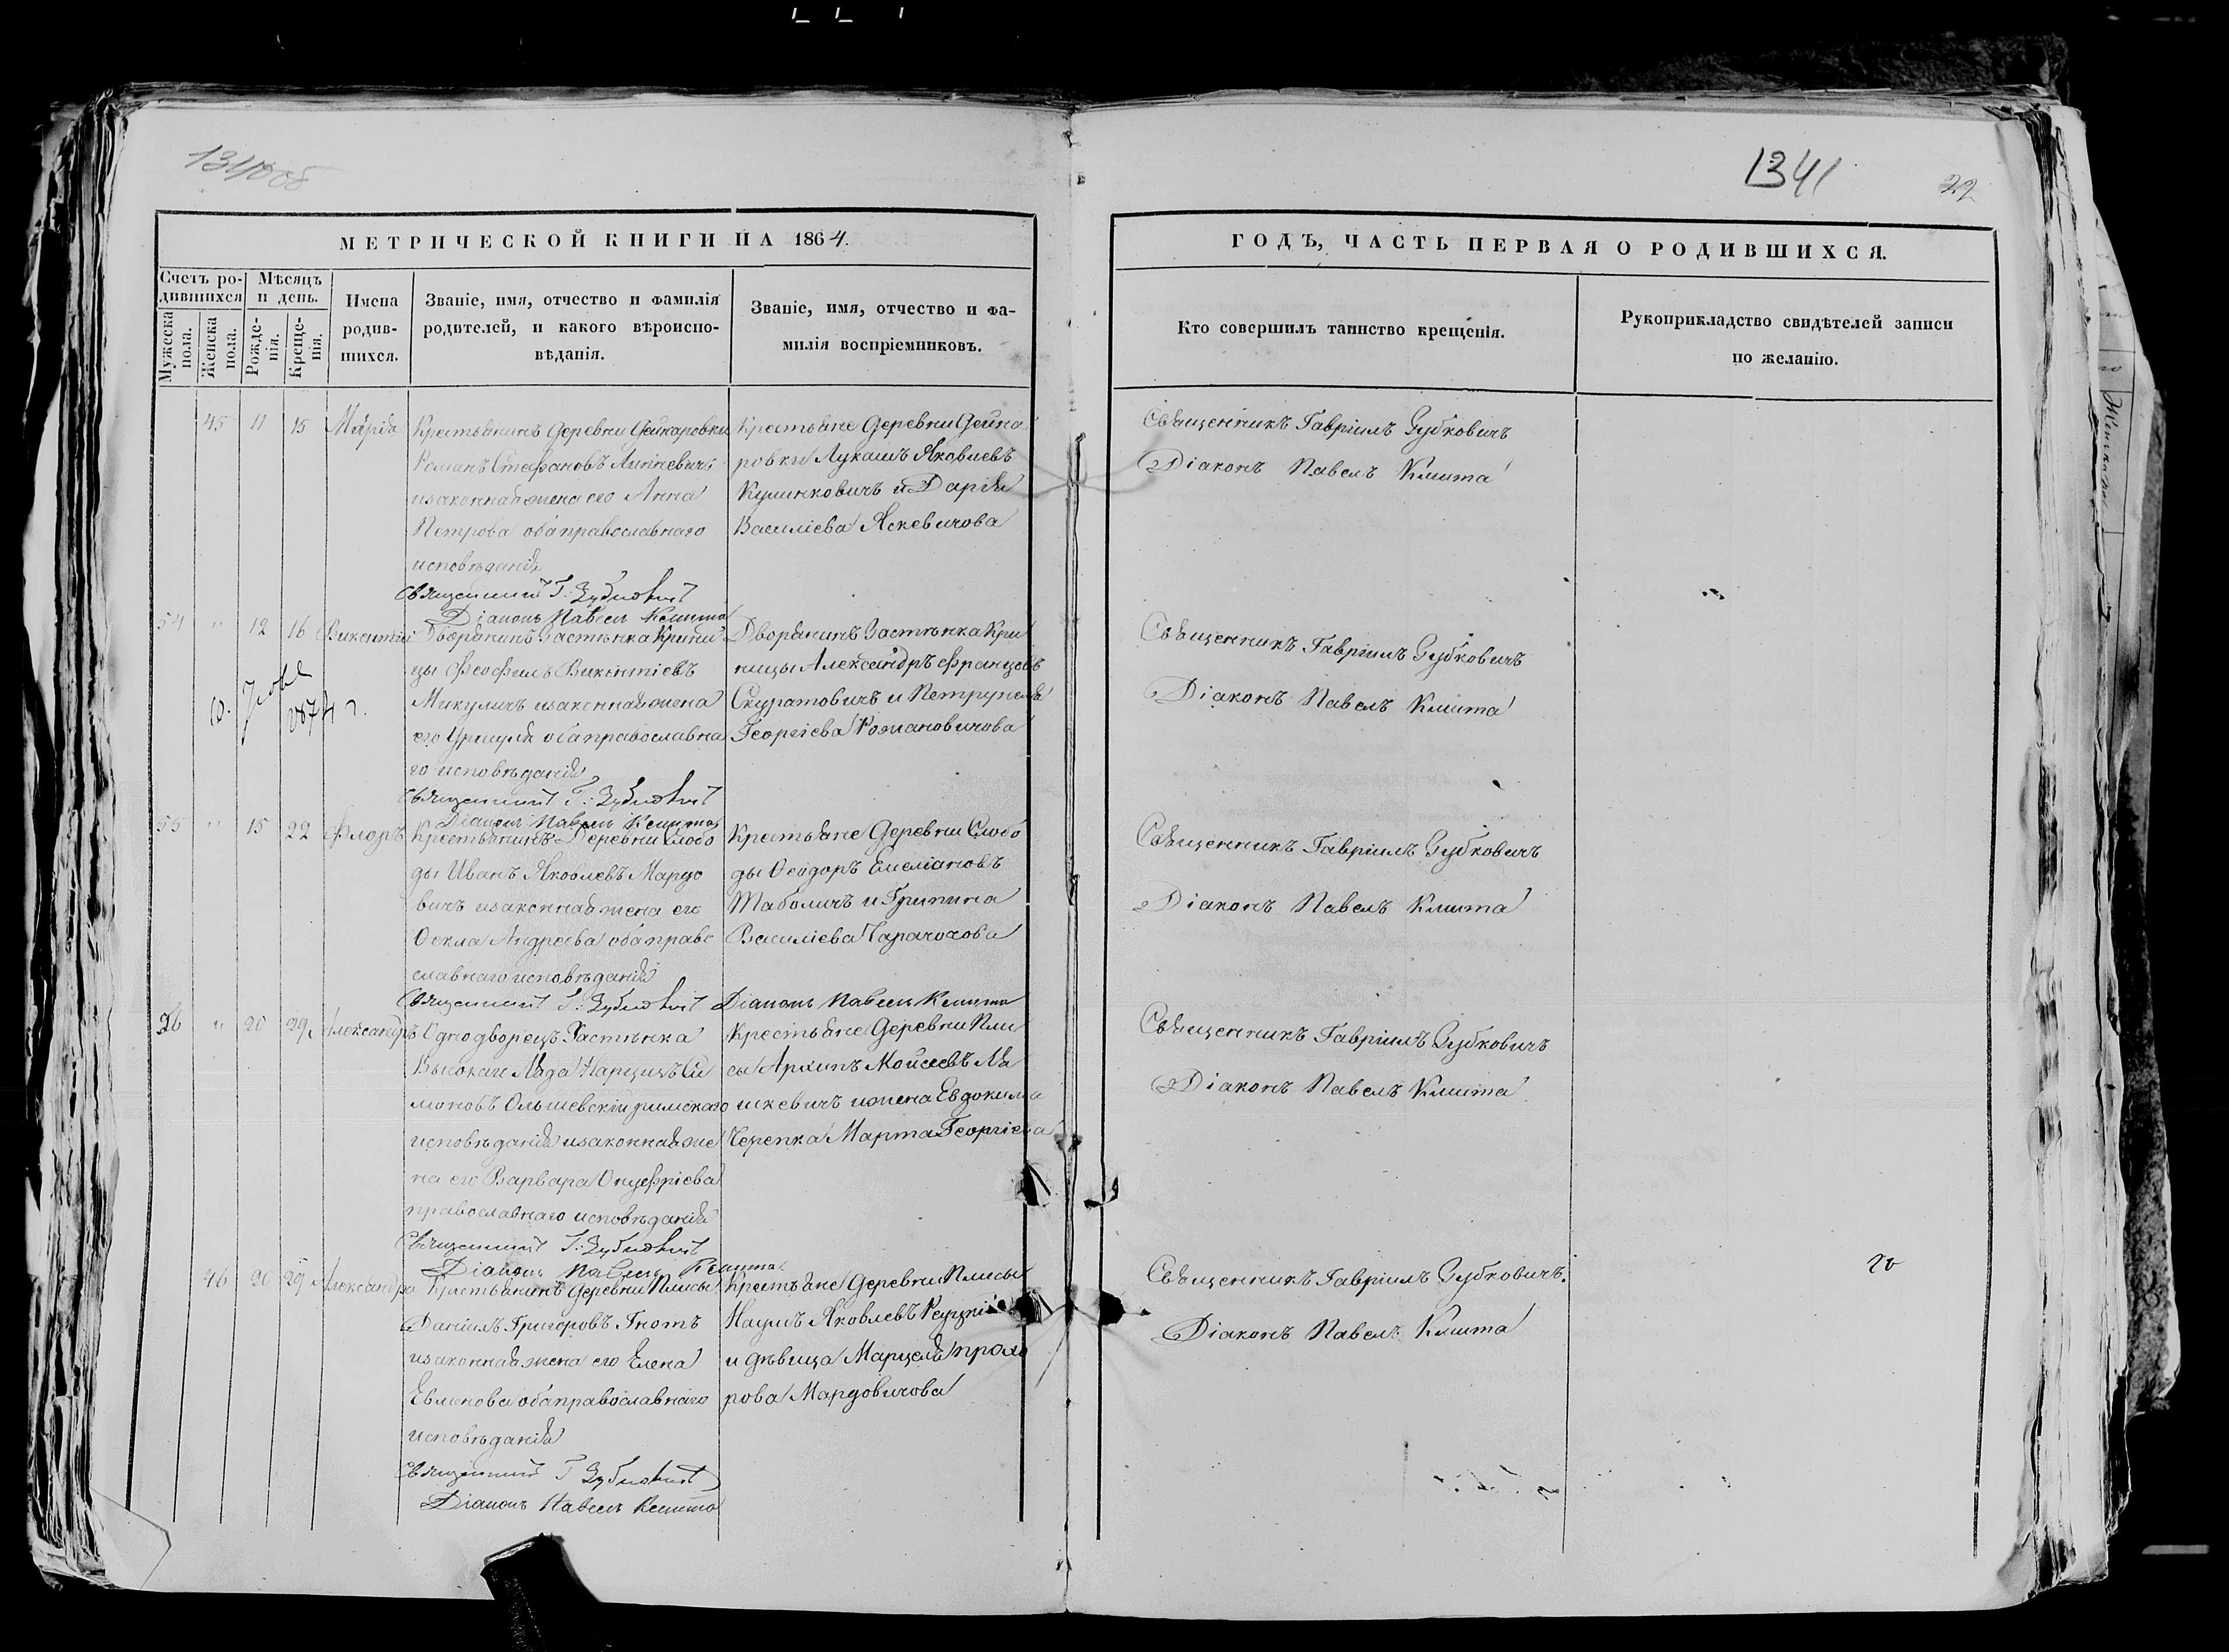 1340об
1341
22
МЕТРИЧЕСКОЙ КНИГИ НА 1864.
ГОДЪ, ЧАСТЬ ПЕРВАЯ О РОДИВШИХСЯ.
Счетъ ро-
дившихся
Мужеска
пола.
Женска
пола.
Мѣсяцъ
и день.
Рожде-
нія.
Креще-
нія.
Имена
родив-
шихся.
Званіе, имя, отчество и фамилія
родителей, и какого вѣроиспо-
вѣданія.
Званіе, имя, отчество и фа-
милія воспріемниковъ.
Кто совершилъ таинство крещенія.
Рукоприкладство свидѣтелей записи
по желанію.
45 11 15 Марія
Крестьянинъ деревни Дейнаровки
Романъ Стефановъ
и законная жена его Анна
Петрова оба православнаго
исповѣданія
Священникъ Г. Зубковичъ
Діаконъ Павелъ Кмита
Крестьяне деревни Дейна
ровки Лукашъ Яковлевъ
Кулинковичъ и Дарія
Василіева Яскевичова
Священникъ Гавріилъ Зубковичъ
Діаконъ Павелъ Кмита
54 " 12 16 Викентій
1874 г.
Дворянинъ Застѣнка Крини
цы Феофилъ Викентіевъ
Микуличъ и законная жена
его Уршуля оба православна
го исповѣданія
Священникъ Г. Зубковичъ
Діаконъ Павелъ Кмита
Дворянинъ Застѣнка Кри
ницы Александръ Францовъ
Скуратовичъ и Петрунеля
Георгіева Романовичова
Священникъ Гавріилъ Зубковичъ
Діаконъ Павелъ Кмита
55 " 15 22 Флоръ
Крестьянинъ Деревни Слобо
ды Иванъ Яковлевъ Мардо
вичъ и законная жена его
Ѳекла Андреева оба право
славнаго исповѣданія
Священникъ Г. Зубковичъ Діаконъ Павелъ Кмита
Крестьяне Деревни Слобо
ды Ѳеодоръ Емеліановъ
Таболичъ и Грипина
Василіева
Священникъ Гавріилъ Зубковичъ
Діаконъ Павелъ Кмита
56 " 20 29 Александръ
Однодворецъ Застѣнка
Высокаго Ляда Нарцизъ Си
моновъ Ольшевскій римскаго
исповѣданія и законная же
на его Варвара Онуфріева
православнаго исповѣданія
Священникъ Г. Зубковичъ
Діаконъ Павелъ Кмита
Крестьяне Деревни Пли
сы Архипъ Мойсеевъ Ля
шкевичъ и жена Евдокима
Черепка Марта Георгіева
Священникъ Гавріилъ Зубковичъ
Діаконъ Павелъ Кмита
46 20 29 Александра
Крестьянинъ деревни Плисы
Даніилъ Григоровъ Гнотъ
и законная жена его Елена
оба православнаго
исповѣданія
Священникъ Г Зубковичъ
Діаконъ Павелъ Кмита
Крестьяне Деревни Плисы
Наумъ Яковлевъ
и дѣвица Марцеля Прохо
рова Мардовичова
Священникъ Гавріилъ Зубковичъ.
Діаконъ Павелъ Кмита